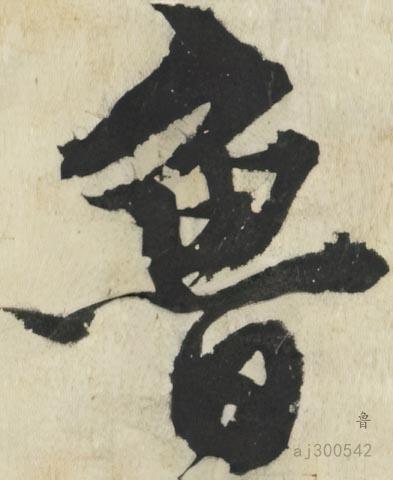 魯
鲁
aj300542